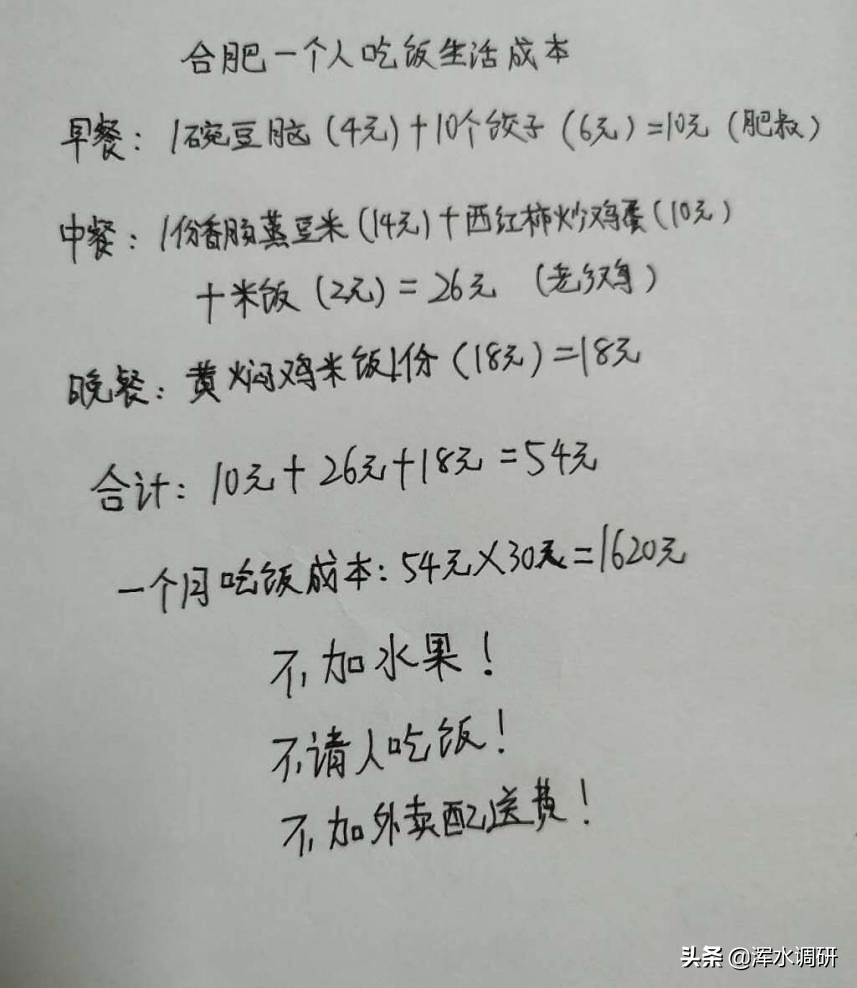 合肥一个人吃饭生活成本
早餐：1碗豆脑（4元）+10个饺子（6元）=10元（肥叔）
中餐：1份香肠蒸豆米（14元）+西红柿炒鸡蛋（10元）
+米饭（2元）=26元（老乡鸡）
晚餐：黄焖鸡米饭1份（18元）=18元
合计：10元+26元+18元=54元
一个月吃饭成本：54元×30天=1620元
不加水果！
不请人吃饭！
不加外卖配送费！
头条 @浑水调研